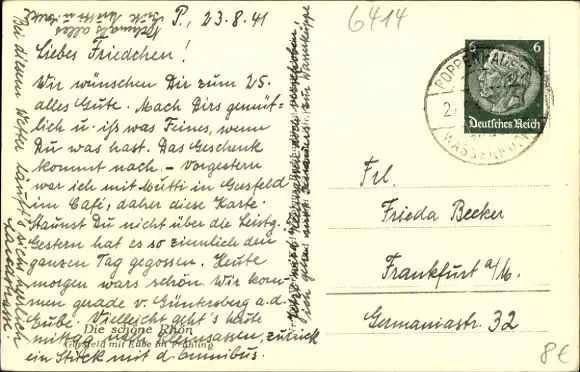 6414
P., 23.8.41
Liebes Friedchen!
Wir wünschen Dir zum 25.
alles Gute. Mach Dirs gemüt-
lich u. iß was Feines, wenn
Du was hast. Das Geschenk
kommt nach. – Vorgestern
war ich mit Mutti in Gersfeld
im Café, daher diese Karte.
Staunst Du nicht über die Leistg.
Gestern hat es so ziemlich den
ganzen Tag gegossen. Heute
morgen wars schön. Wir kom-
men gerade v. Güntersberg a. d.
Eube. Vielleicht geht's heute
mittag nach zurück
ein Stück mit d. Omnibus.
Bei diesem Wetter läuft's sich herrlich
Landstrasse.
Nochmals alles
Gute Mutti u.
Die schöne Rhön
Gersfeld mit Eube im Frühling
POPPENHAUSEN
WASSERKUPPE
6 6
Deutsches Reich
Frl.
Frieda Becker
Frankfurt a/M.
Germaniastr. 32
8€